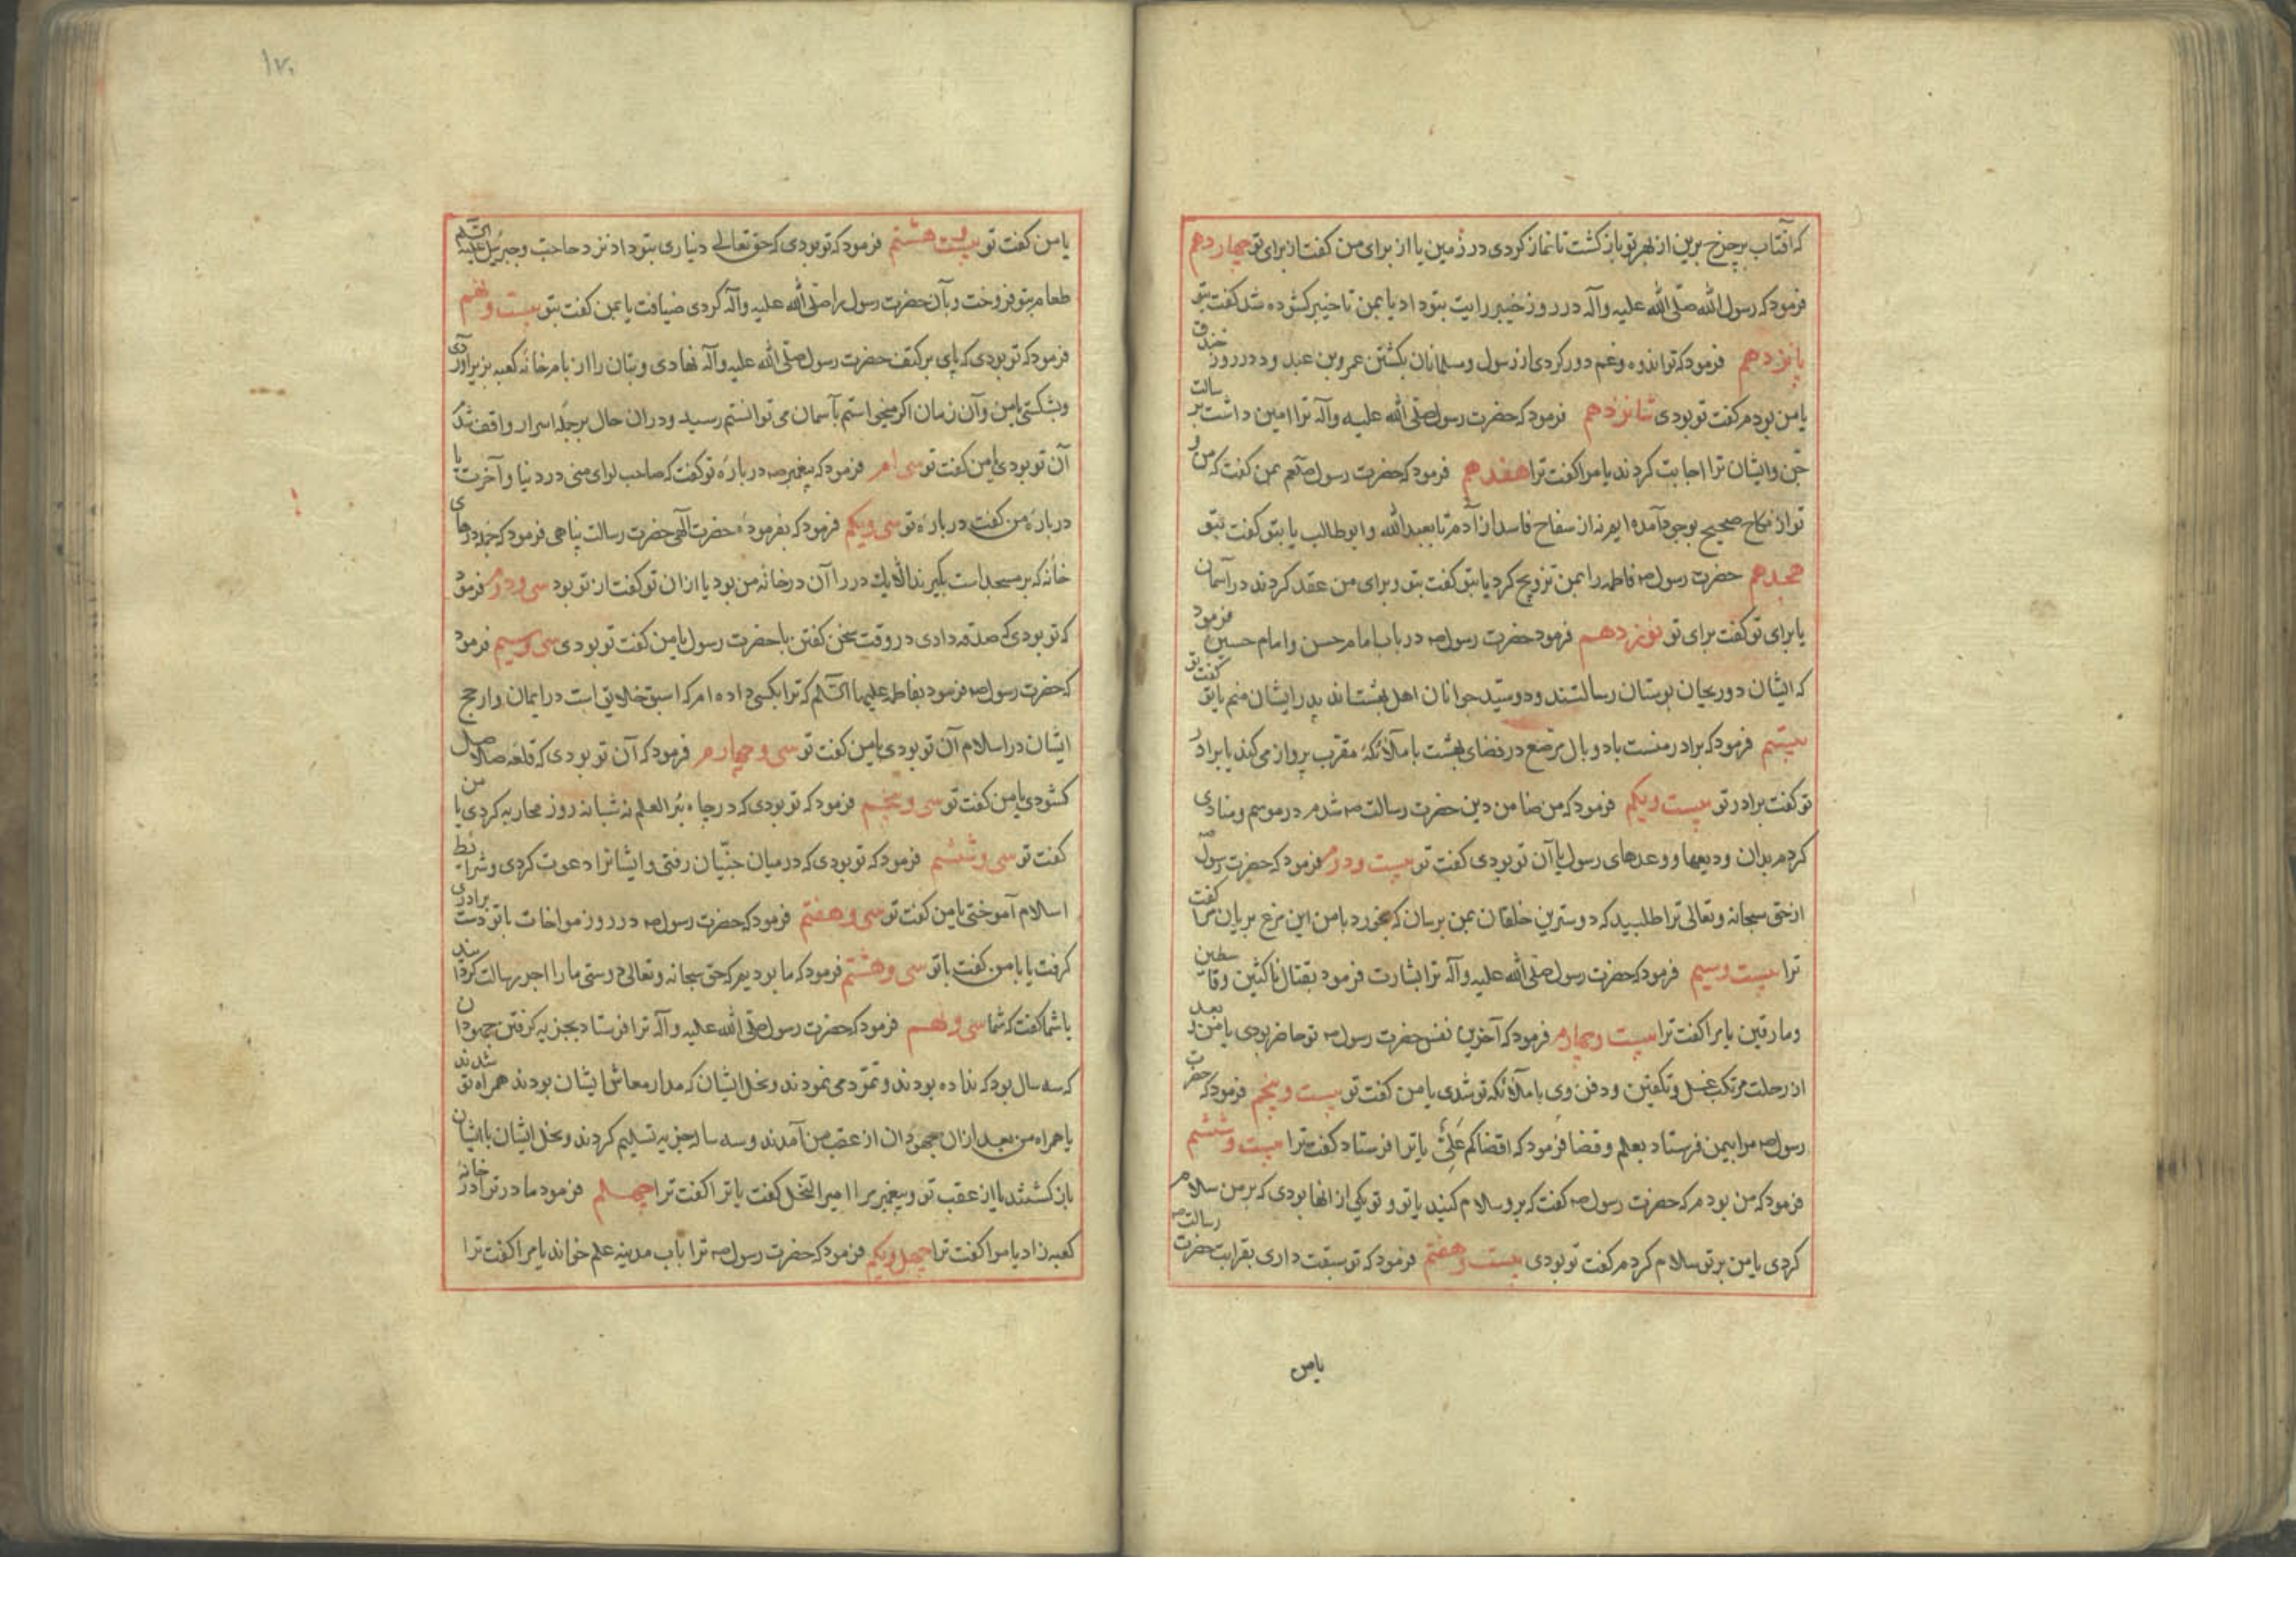 که آفتاب بر چرخ برین از بهر تو باز کشت تا نماز کردی در زمین یا از برای من کفت از برای تو چهاردهم
فرمود که رسول الله صلّی الله علیه وآله در روز خیبر رایت بتو داد یا بمن تا خیبر کشوده شد کفت بتو
پانزدهم فرمود که تو اندوه وغم دور کردی از رسول ومسلمانان بکشتن عمرو بن عبد ود در روز خندق
یا من بودم کفت تو بودی شانزدهم فرمود که حضرت رسول صلّی الله علیه وآله ترا امین داشت بر سالت
جن وایشان ترا اجابت کردند یا مرا کفت ترا هفدهم فرمود که حضرت رسول صلعم بمن کفت که من و
تو از نکاح صحیح بوجود آمده ایم نه از سفاح فاسد از آدم تا بعبدالله وابوطالب یا بتو کفت بتو
هجدهم حضرت رسول ص فاطمه را بمن تزویج کرد یا بتو کفت بتو وبرای من عقد کردند در آسمان
یا برای تو کفت برای تو نوزدهم فرمود حضرت رسول ص در باب امام حسن وامام حسین فرمود
که ایشان دو ریحان بوستان رسالتند ودو سید جوانان اهل بهشت اند پدر ایشان منم یا تو کفت تو
بیستم فرمود که برادر منست با دو بال مرصع در فضای بهشت با ملائکهٔ مقرب پرواز می کند یا برادر
تو کفت برادر تو بیست ویکم فرمود که من ضامن دین حضرت رسالت ص شدم در موسم ومنادی
کردم بدان ودیعها ووعدهای رسول یا آن تو بودی کفت تو بیست ودوم فرمود که حضرت رسول ص
از حق سبحانه وتعالی ترا طلبید که دوسترین خلقان بمن برسان که بخورد با من این مرغ بریان مرا کفت
ترا بیست وسیم فرمود که حضرت رسول صلّی الله علیه وآله ترا بشارت فرمود بقتال ناکثین وقاسطین
ومارقین یا مرا کفت ترا بیست وچهارم فرمود که آخرین نفس حضرت رسول ص تو حاضر بودی یا من بعد
از رحلت مرتکب غسل وتکفین ودفن وی با ملائکه تو شدی یا من کفت تو بیست وپنجم فرمود که حضرت
رسول ص مرا بیمن فرستاد بعلم وقضا فرمود که اقضاکم علیّ یا ترا فرستاد کفت ترا بیست وششم
فرمود که من بودم که حضرت رسول ص کفت که برو سلام کنید یا تو وتو یکی از انها بودی که بر من سلام
کردی یا من بر تو سلام کردم کفت تو بودی بیست وهفتم فرمود که تو سبقت داری بقرابت حضرت رسالت ص
یا من
۱۷۰
یا من کفت تو بیست هشتم فرمود که تو بودی که حق تعالی دنیاری بتو داد نزد حاجت وجبرئیل علیه السلام
طعام بتو فروخت وبآن حضرت رسول را صلّی الله علیه وآله کردی ضیافت یا بمن کفت بتو بیست ونهم
فرمود که تو بودی که پای بر کتف حضرت رسول صلّی الله علیه وآله نهادی وبتان را از بام خانه کعبه بزیر آوردی
وبشکستی یا من وآن زمان اکر میخواستم بآسمان می توانستم رسید ودران حال بر جمله اسرار واقف شدم
آن تو بودی یا من کفت تو سی ام فرمود که پیغمبر ص در باره تو کفت که صاحب لوای منی در دنیا وآخرت یا
در باره من کفت در باره تو سی ویکم فرمود که بفرمودهٔ حضرت الهی حضرت رسالت پناهی فرمود که درهای
خانه که بر مسجد است بکیرند الا یك در را آن در خانه من بود یا ازان تو کفت از تو بود سی ودوم فرمود
که تو بودی که صدقه دادی در وقت سخن کفتن با حضرت رسول یا من کفت تو بودی سی وسیم فرمود
که حضرت رسول ص فرمود بفاطمه علیها السلام که ترا بکسی داده ام که اسبق خلایق است در ایمان وارجح
ایشان در اسلام آن تو بودی یا من کفت تو سی وچهارم فرمود که آن تو بودی که قلعه صلاصل
کشودی یا من کفت تو سی وپنجم فرمود که تو بودی که در چاه بئر العلم نه شبانه روز محاربه کردی یا من
کفت تو سی وششم فرمود که تو بودی که در میان جنّیان رفتی وایشانرا دعوت کردی وشرائط
اسلام آموختی یا من کفت تو سی وهفتم فرمود که حضرت رسول ص در روز مواخات با تو دست برادری
کرفت یا با من کفت با تو سی وهشتم فرمود که ما بودیم که حق سبحانه وتعالی دوستی ما را اجر رسالت کردانید
یا شما کفت که شما سی ونهم فرمود که حضرت رسول صلّی الله علیه وآله ترا فرستاد بجزیه کرفتن جهودان
که سه سال بود که نداده بودند وتمرّد می نمودند ونخل ایشان که مدار معاش ایشان بودند همراه تو شدند
یا همراه من بعد ازان جهودان از عقب من آمدند وسه ساله جزیه تسلیم کردند ونخل ایشان با ایشان
باز کشتند یا از عقب تو وپیغمبر مرا امیر النحل کفت یا ترا کفت ترا چهلم فرمود مادر ترا در خانهٔ
کعبه زاد یا مرا کفت ترا چهل ویکم فرمود که حضرت رسول ص ترا باب مدینه علم خواند یا مرا کفت ترا